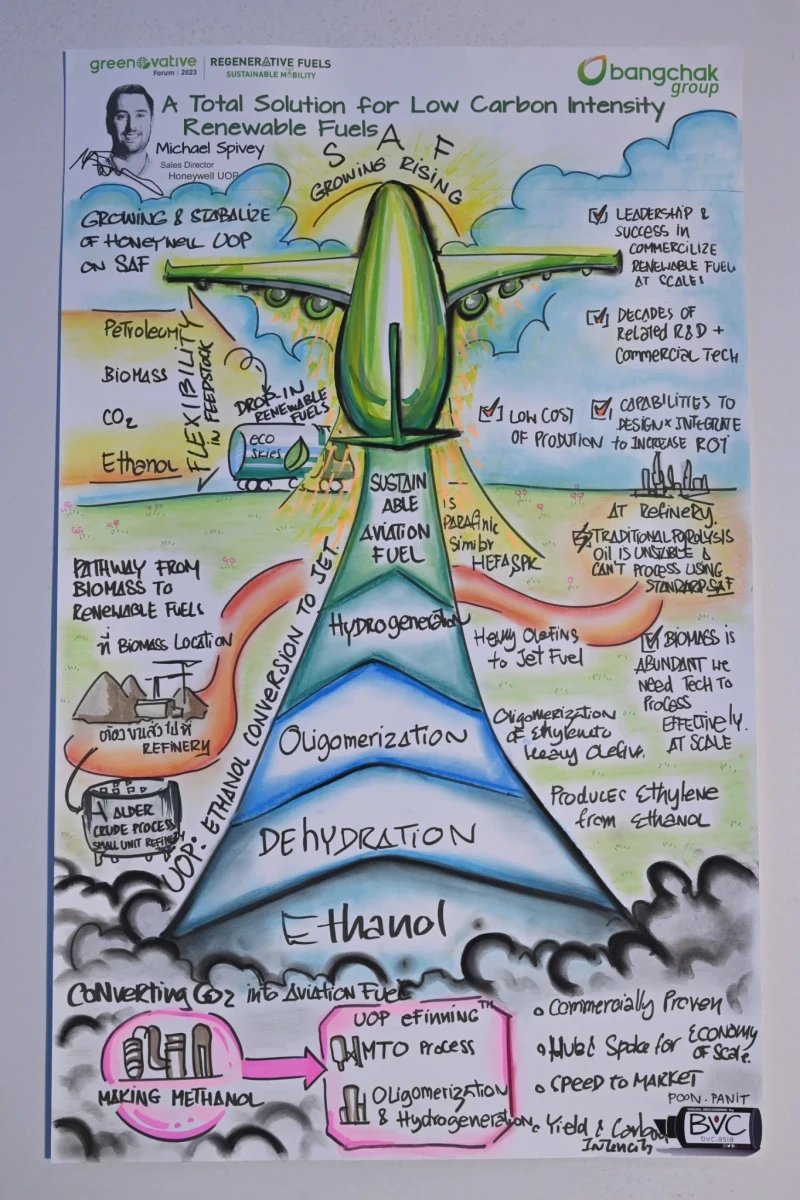 greenovative
Forum | 2023
REGENERATIVE FUELS
SUSTAINABLE MOBILITY
bangchak
group
A Total Solution for Low Carbon Intensity
Renewable Fuels
Michael Spivey
Sales Director
Honeywell UOP
SAF
GROWING RISING
GROWING & STABALIZE
OF HONEYWELL UOP
ON SAF
PETROLEUM
BIOMASS
CO2
Ethanol
FLEXIBILITY
IN FEEDSTOCK
DROP-IN
RENEWABLE
FUELS
eco
SKIES
LEADERSHIP &
SUCCESS IN
COMMERCILIZE
RENEWABLE FUEL
AT SCALES
DECADES OF
Related R&D +
Commercial TECH
LOW COST
OF PRODUTION
CAPABILITIES TO
DESIGN & INTEGRATE
to INCREASE ROI
SUSTAIN
ABLE
AVIATION
FUEL
IS
PARAFINIC
Similar
HEFA SPK
AT REFINERY.
TRADITIONAL PYROLYSIS
OIL IS UNSTABLE &
CAN'T PROCESS USING
STANDARD SAF
PATHWAY FROM
BIOMASS TO
RENEWABLE FUELS
ที่ BIOMASS LOCATION
REFINERY
ALDER
CRUDE PROCESS
SMALL UNIT REFINERY
UOP: ETHANOL CONVERSION TO JET.
Hydrogeneration
Heavy Olefins
to Jet Fuel
BIOMASS IS
ABUNDANT WE
NEED TECH TO
PROCESS
EFFECTIVELY.
AT SCALE
Oligomerization
Oligomerization
of Ethylene to
Heavy Olefin.
DEHYDRATION
Produces Ethylene
from Ethanol
Ethanol
Converting CO2 into Aviation Fuel
MAKING METHANOL
UOP eFinning™
MTO Process
Oligomerization
& Hydrogeneration
Commercially Proven
Hub & Spoke for ECONOMY
OF Scale.
SPEED TO MARKET
Yield & Carbon
Intencity
POON.PANIT
BVC
bvc.asia